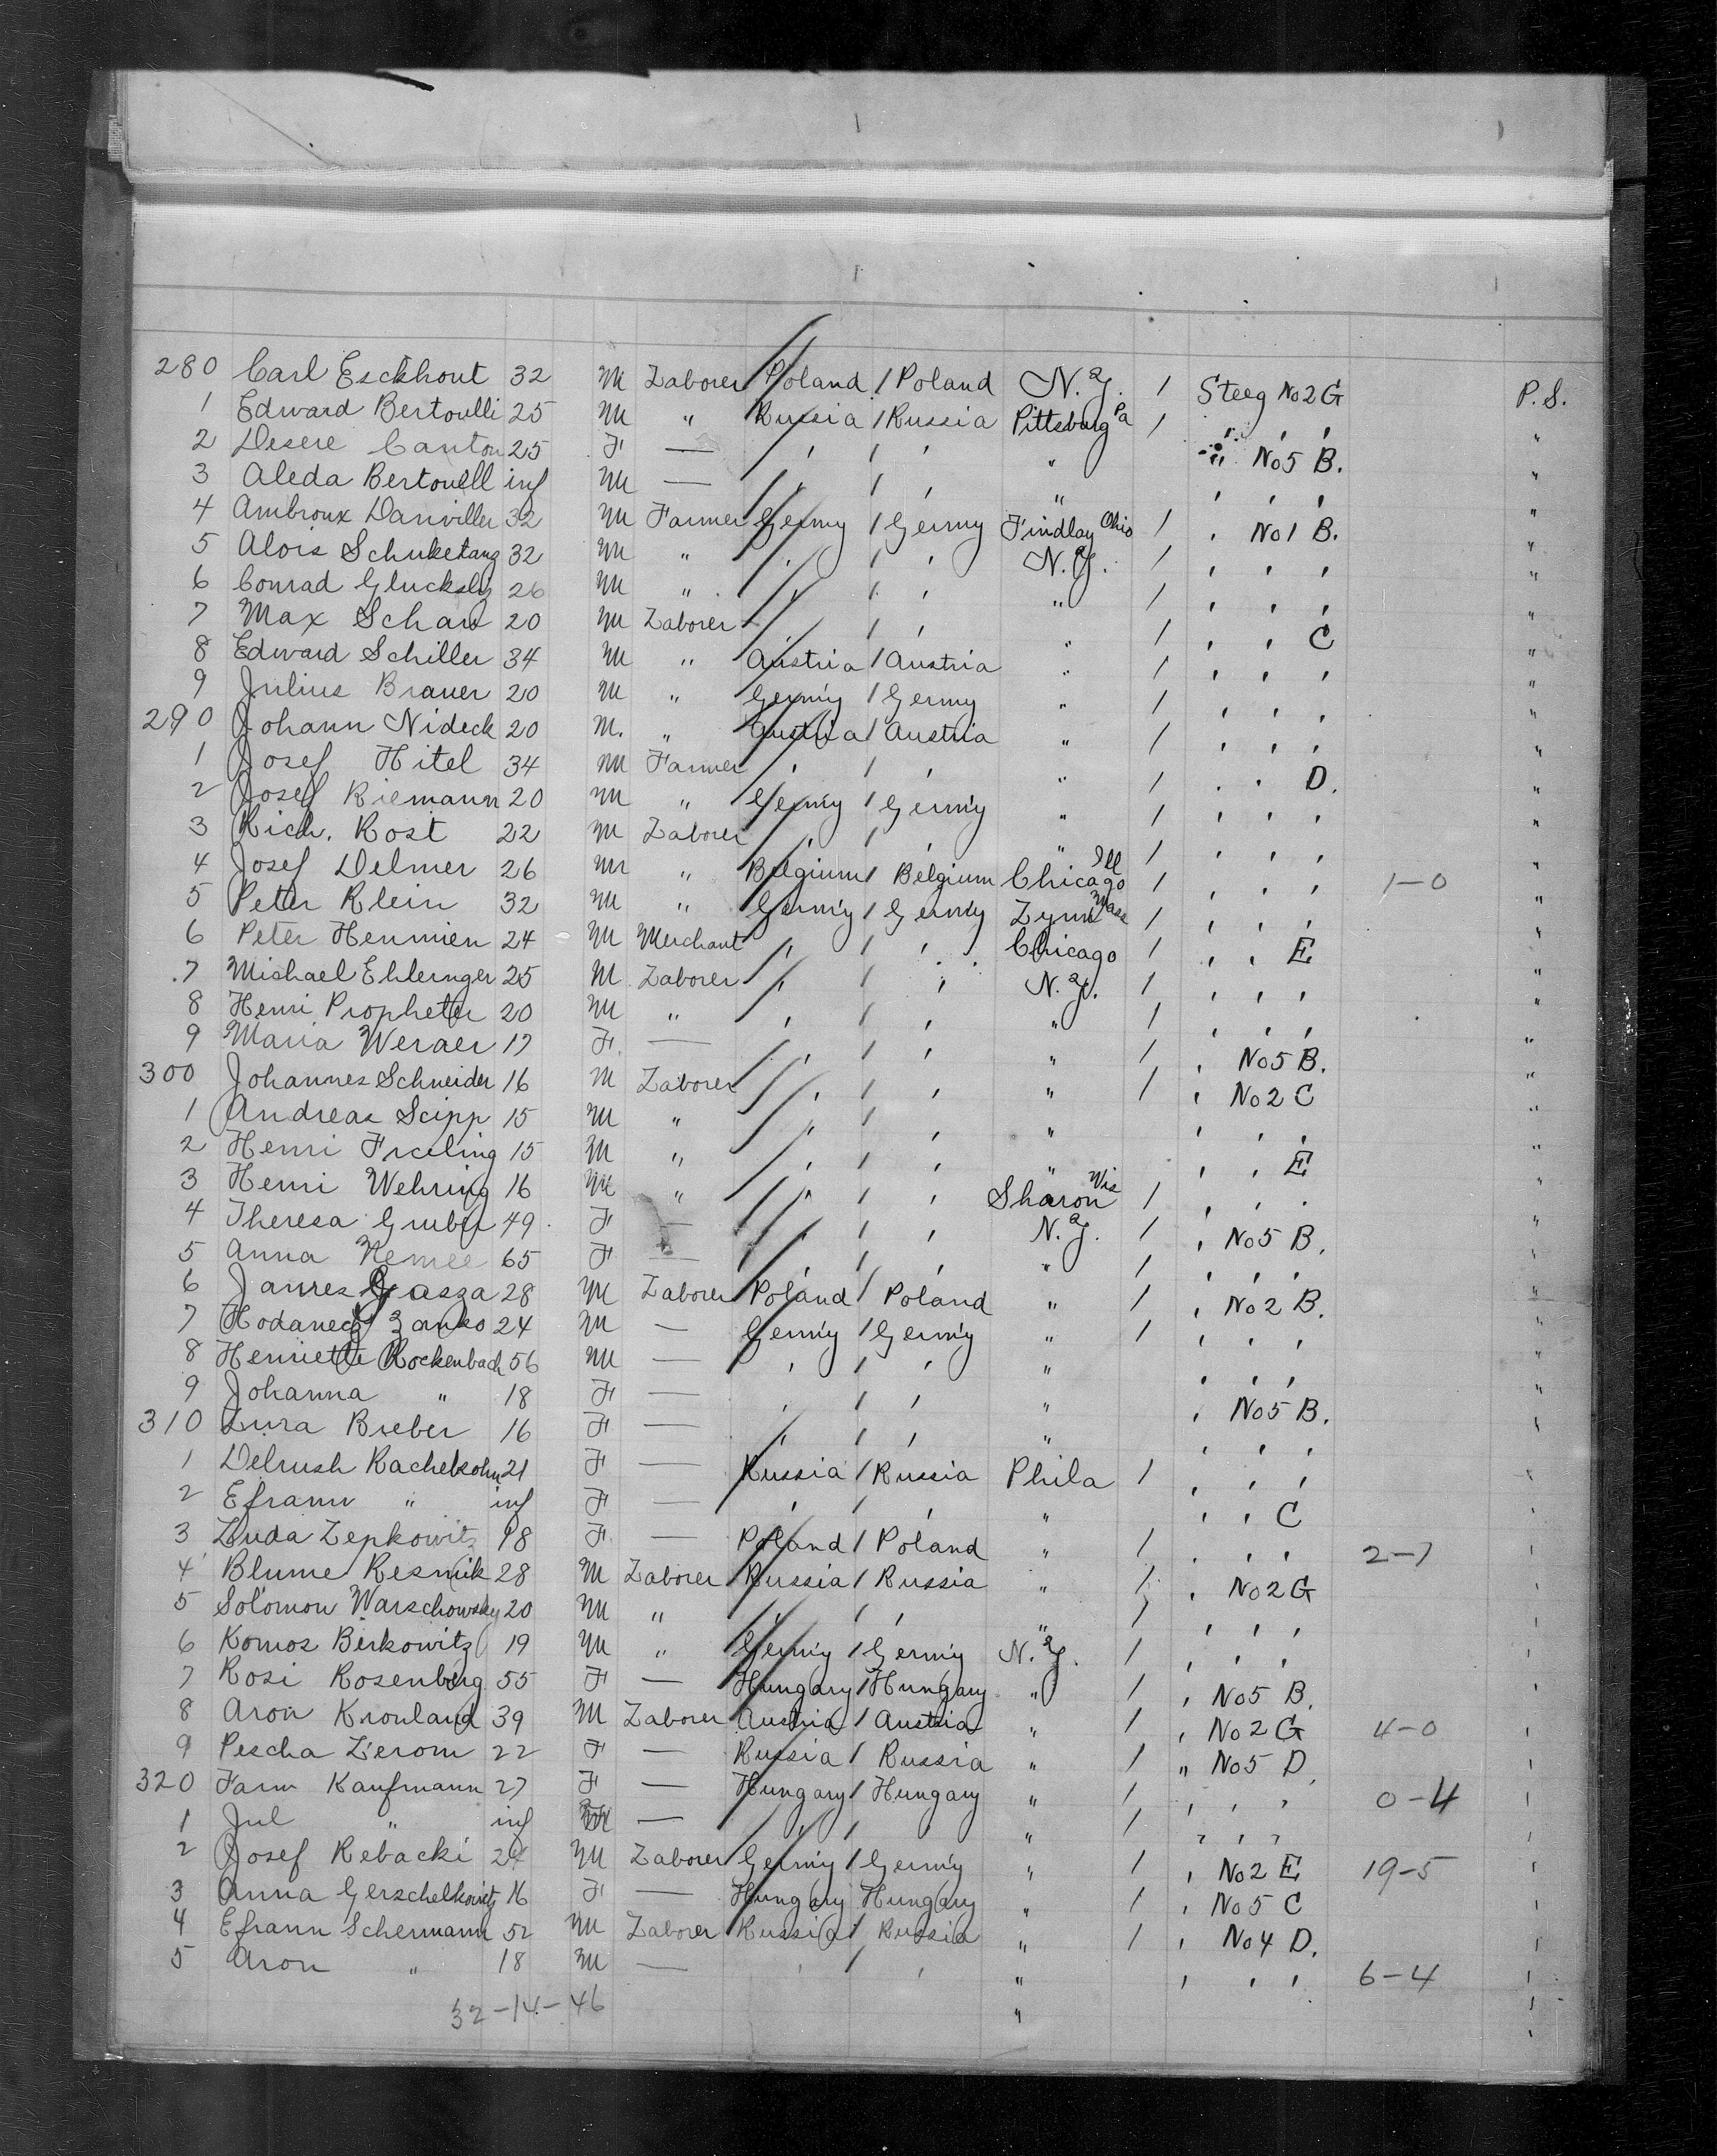 280 Carl Eeckhout 32 M Laborer Poland / Poland N.Y. / Steeg No2 G P.S.
1 Edward Bertoulli 25 M " Russia / Russia Pittsburg Pa / " ' ' "
2 Desere Canton 25 F — ' / ' " " No5 B. "
3 Aleda Bertouell inf M — ' / ' " ' ' ' "
4 Ambroux Danviller 32 M Farmer Germy / Germy Findlay Ohio / ' No1 B. "
5 Alois Schuketanz 32 M " ' / ' N.Y. / ' ' ' "
6 Conrad 26 M " ' / ' " / ' ' ' "
7 Max Schau 20 M Laborer ' / ' " / ' ' C "
8 Edward Schiller 34 M " Austria / Austria " / ' ' ' "
9 Julius Brauer 20 M " Germ'y / Germy " / ' ' ' "
290 Johann Nideck 20 M. " Austria / Austria " / ' ' ' "
1 Josef Hitel 34 M Farmer ' / ' " / ' ' D. "
2 Josef Riemann 20 M " Germ'y / Germ'y " / ' ' ' "
3 Rich. Rost 22 M Laborer ' / ' " / ' ' ' "
4 Josef Delmer 26 M " Belgium / Belgium Chicago Ill / ' ' ' 1-0 "
5 Peter Klein 32 M " Germ'y / Germ'y Lynn Mass / ' ' ' "
6 Peter Hemmien 24 M Merchant ' / ' Chicago / ' ' E "
7 Mishael Ehlernger 25 M Laborer ' / ' N.Y. / ' ' ' "
8 Henri Propheter 20 M " ' / ' " / ' ' ' "
9 Maria Weraer 17 F. — ' / ' " / ' No5 B. "
300 Johannes Schneider 16 M Laborer ' / ' " / ' No2 C "
1 Andreas Scipp 15 M " ' / ' " ' ' ' "
2 Henri Freeling 15 M " ' / ' " ' ' E "
3 Henri Wehring 16 M " ' / ' Sharon Wis / ' ' ' "
4 Theresa Gruber 49 F — ' / ' N.Y. / ' No5 B. "
5 Anna Nemee 65 F — ' / ' " / ' ' ' "
6 James Gasza 28 M Laborer Poland / Poland " / ' No2 B. "
7 Hodanecz Zanko 24 M — Germ'y / Germ'y " / ' ' ' "
8 Henriette Rockenbach 56 M — ' / ' " ' ' ' "
9 Johanna " 18 F — ' / ' " ' No5 B. "
310 Lura Bieber 16 F — ' / ' " ' ' ' "
1 Delrush Rachelsohn 21 F — Russia / Russia Phila / ' ' ' "
2 Efraim " inf F — ' / ' " ' ' C '
3 Luda Lepkowitz 18 F. — Poland / Poland " / ' ' ' 2-1 '
4 Blume Resnik 28 M Laborer Russia / Russia " / ' No2 G '
5 Solomon Warschowsky 20 M " ' / ' " / ' ' ' '
6 Komos Berkowitz 19 M " Germ'y / Germ'y N.Y. / ' ' ' '
7 Rosi Rosenberg 55 F — Hungary / Hungary " / ' No5 B. '
8 Aron Kronland 39 M Laborer Austria / Austria " / ' No2 G 4-0 '
9 Pescha Lerom 22 F — Russia / Russia " / " No5 D. '
320 Fann Kaufmann 27 F — Hungary / Hungary " / ' ' ' 0-4 '
1 Jul " inf — ' / ' " / ' ' ' '
2 Josef Rebacki 24 M Laborer Germ'y / Germ'y " / ' No2 E 19-5 '
3 Anna Gerschelkowitz 16 F — Hungary Hungary " / ' No5 C '
4 Efraim Schermann 52 M Laborer Russia / Russia " / ' No4 D. '
5 Aron " 18 M — ' / ' " ' ' ' 6-4 '
32-14-46 " '